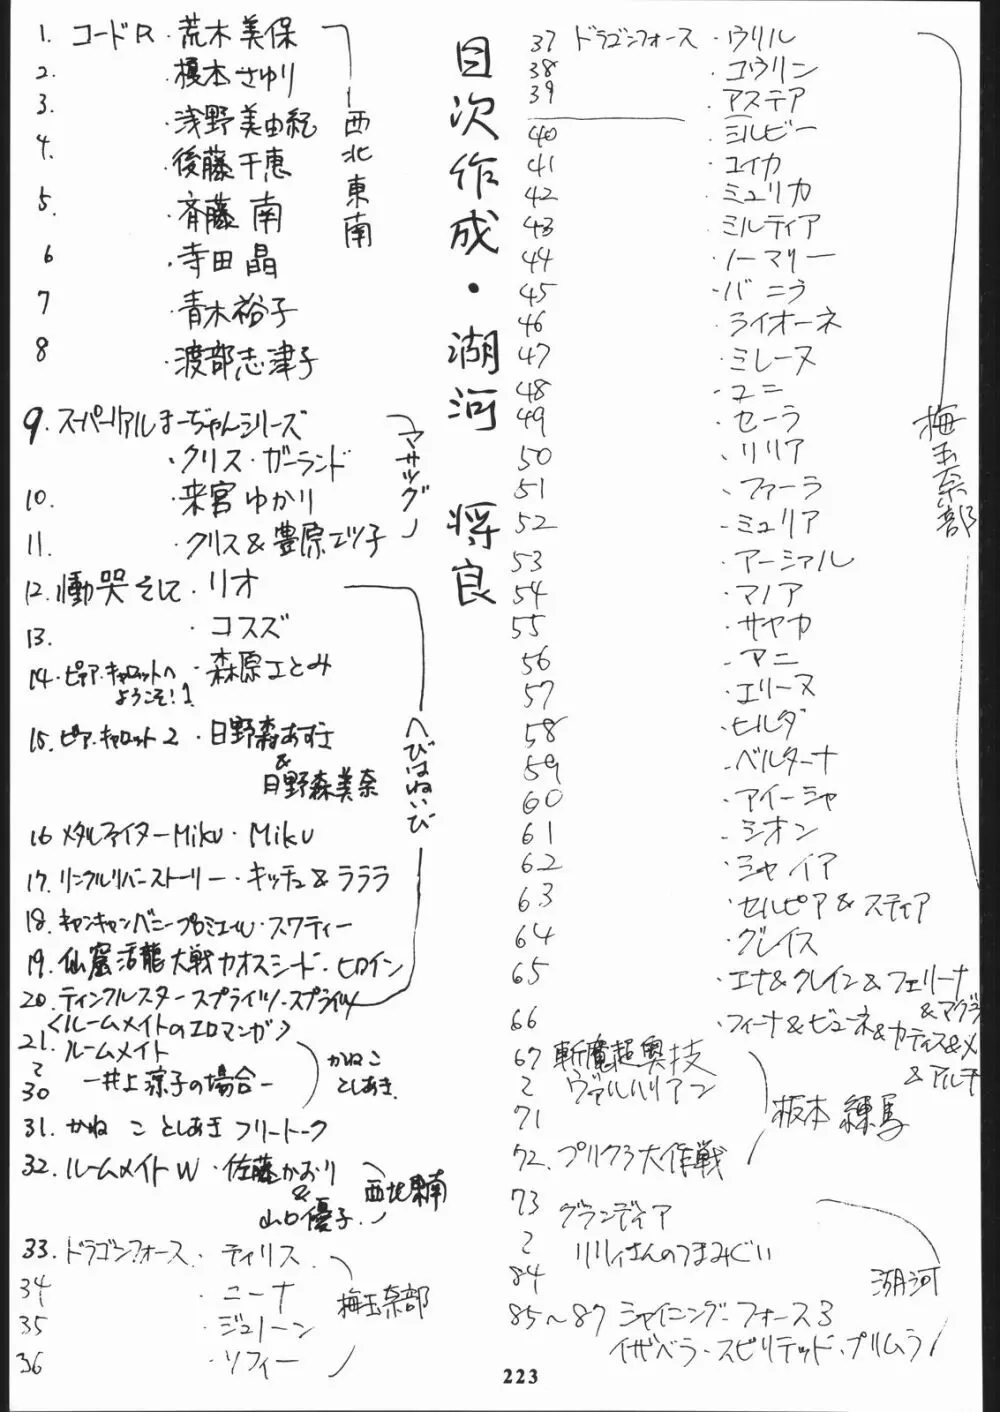 目次作成・湖河 将良
1. コードR ・荒木美保
2. ・榎本さゆり
3. ・浅野美由紀
4. ・後藤千恵
5. ・斉藤 南
6 ・寺田晶
7 ・青木裕子
8 ・渡部志津子
西北東南
9. スーパーリアルまーじゃんシリーズ
・クリス・ガーランド
10. ・来宮ゆかり
11. ・クリス&豊原エツ子
マサツグ
12. 慟哭そして・リオ
13. ・コスズ
14. ピア・キャロットへ ・森原さとみ
ようこそ!!
15. ピア・キャロット2 ・日野森あずさ
&
日野森美奈
16 メタルファイターMiku・Miku
17. リンクルリバーストーリー・キッチュ&ラララ
18. キャンキャンバニープルミエール・スワティー
19. 仙窟活龍大戦カオスシード・ヒロイン
20. ティンクルスタースプライツ・スプライツ
へびはねいび
<ルームメイトのエロマンガ>
21. ルームメイト
〜 ー井上涼子の場合ー
30
かねこ
としあき
31. かねこ としあき フリートーク
32. ルームメイトW・佐藤かおり
&
山口優子
西北東南
33. ドラゴンフォース・ティリス
34 ・ニーナ
35 ・ジュノーン
36 ・ソフィー
梅玉奈部
37 ドラゴンフォース ・ウリル
38 ・コウリン
39 ・アステア
40 ・シルビー
41 ・ユイカ
42 ・ミュリカ
43 ・ミルティア
44 ・ノーマリー
45 ・バニラ
46 ・ライオーネ
47 ・ミレーヌ
48 ・ユニ
49 ・セーラ
50 ・リリア
51 ・ファーラ
52 ・ミュリア
53 ・アーシアル
54 ・マノア
55 ・サヤカ
56 ・アニ
57 ・エリーヌ
58 ・ヒルダ
59 ・ベルターナ
60 ・アイーシャ
61 ・シオン
62 ・シャイア
63 ・セルピア&スティア
64 ・グレイス
65 ・エナ&クレイン&フェリーナ
&マグラ
66 ・フィーナ&ビューネ&カティス&メ
&アルチ
梅玉奈部
67 斬魔超奥技
〜 ヴァルハリアン
71
72. プリクラ大作戦
板本 練馬
73 グランディア
〜 リリィさんのつまみぐい
84
85〜87 シャイニング・フォース3
イザベラ・スピリテッド・プリムラ
湖河
223